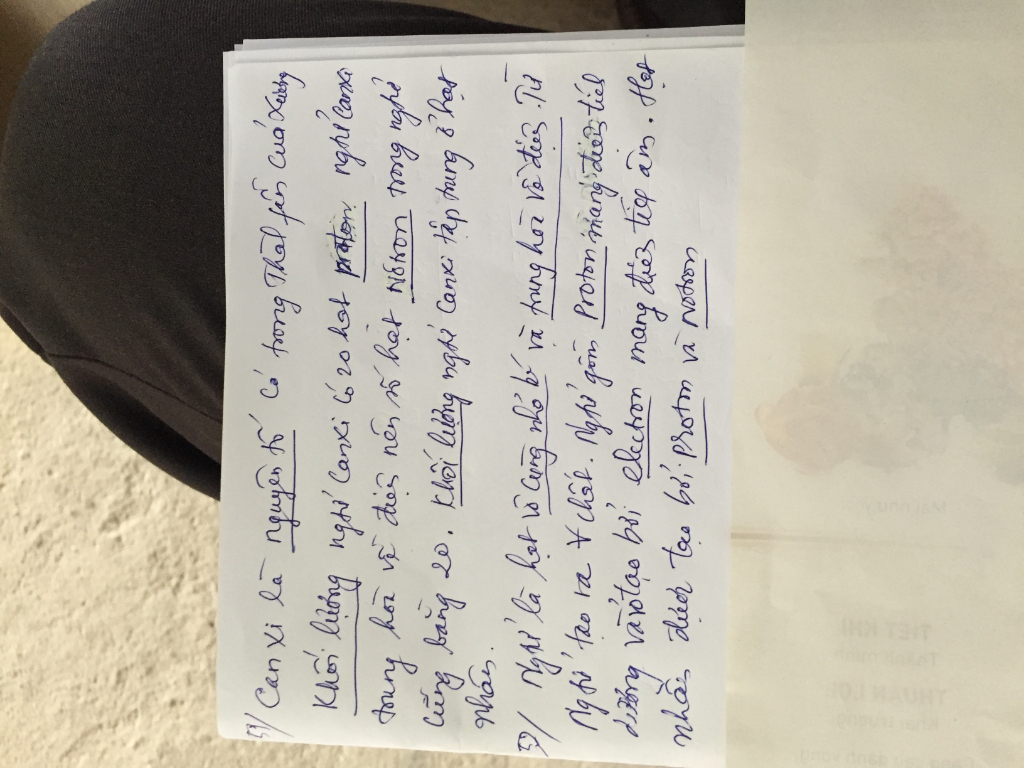 51/ Canxi là nguyên tố có trong thành phần của xương
Khối lượng ngtử Canxi có 20 hạt proton ngtử Canxi
trung hòa về điện nên số hạt Nơtron trong ngtử
cũng bằng 20. Khối lượng ngtử Canxi tập trung ở hạt
nhân.
52/ Ngtử là hạt vô cùng nhỏ bé và trung hòa về điện. Từ
Ngtử tạo ra ∀ chất. Ngtử gồm Proton mang điện tích
dương và vỏ tạo bởi electron mang điện tích âm. Hạt
nhân được tạo bởi Proton và Nơtron
TIẾT KHÍ
Thanh minh
THUẬN LỢI:
Khai trương